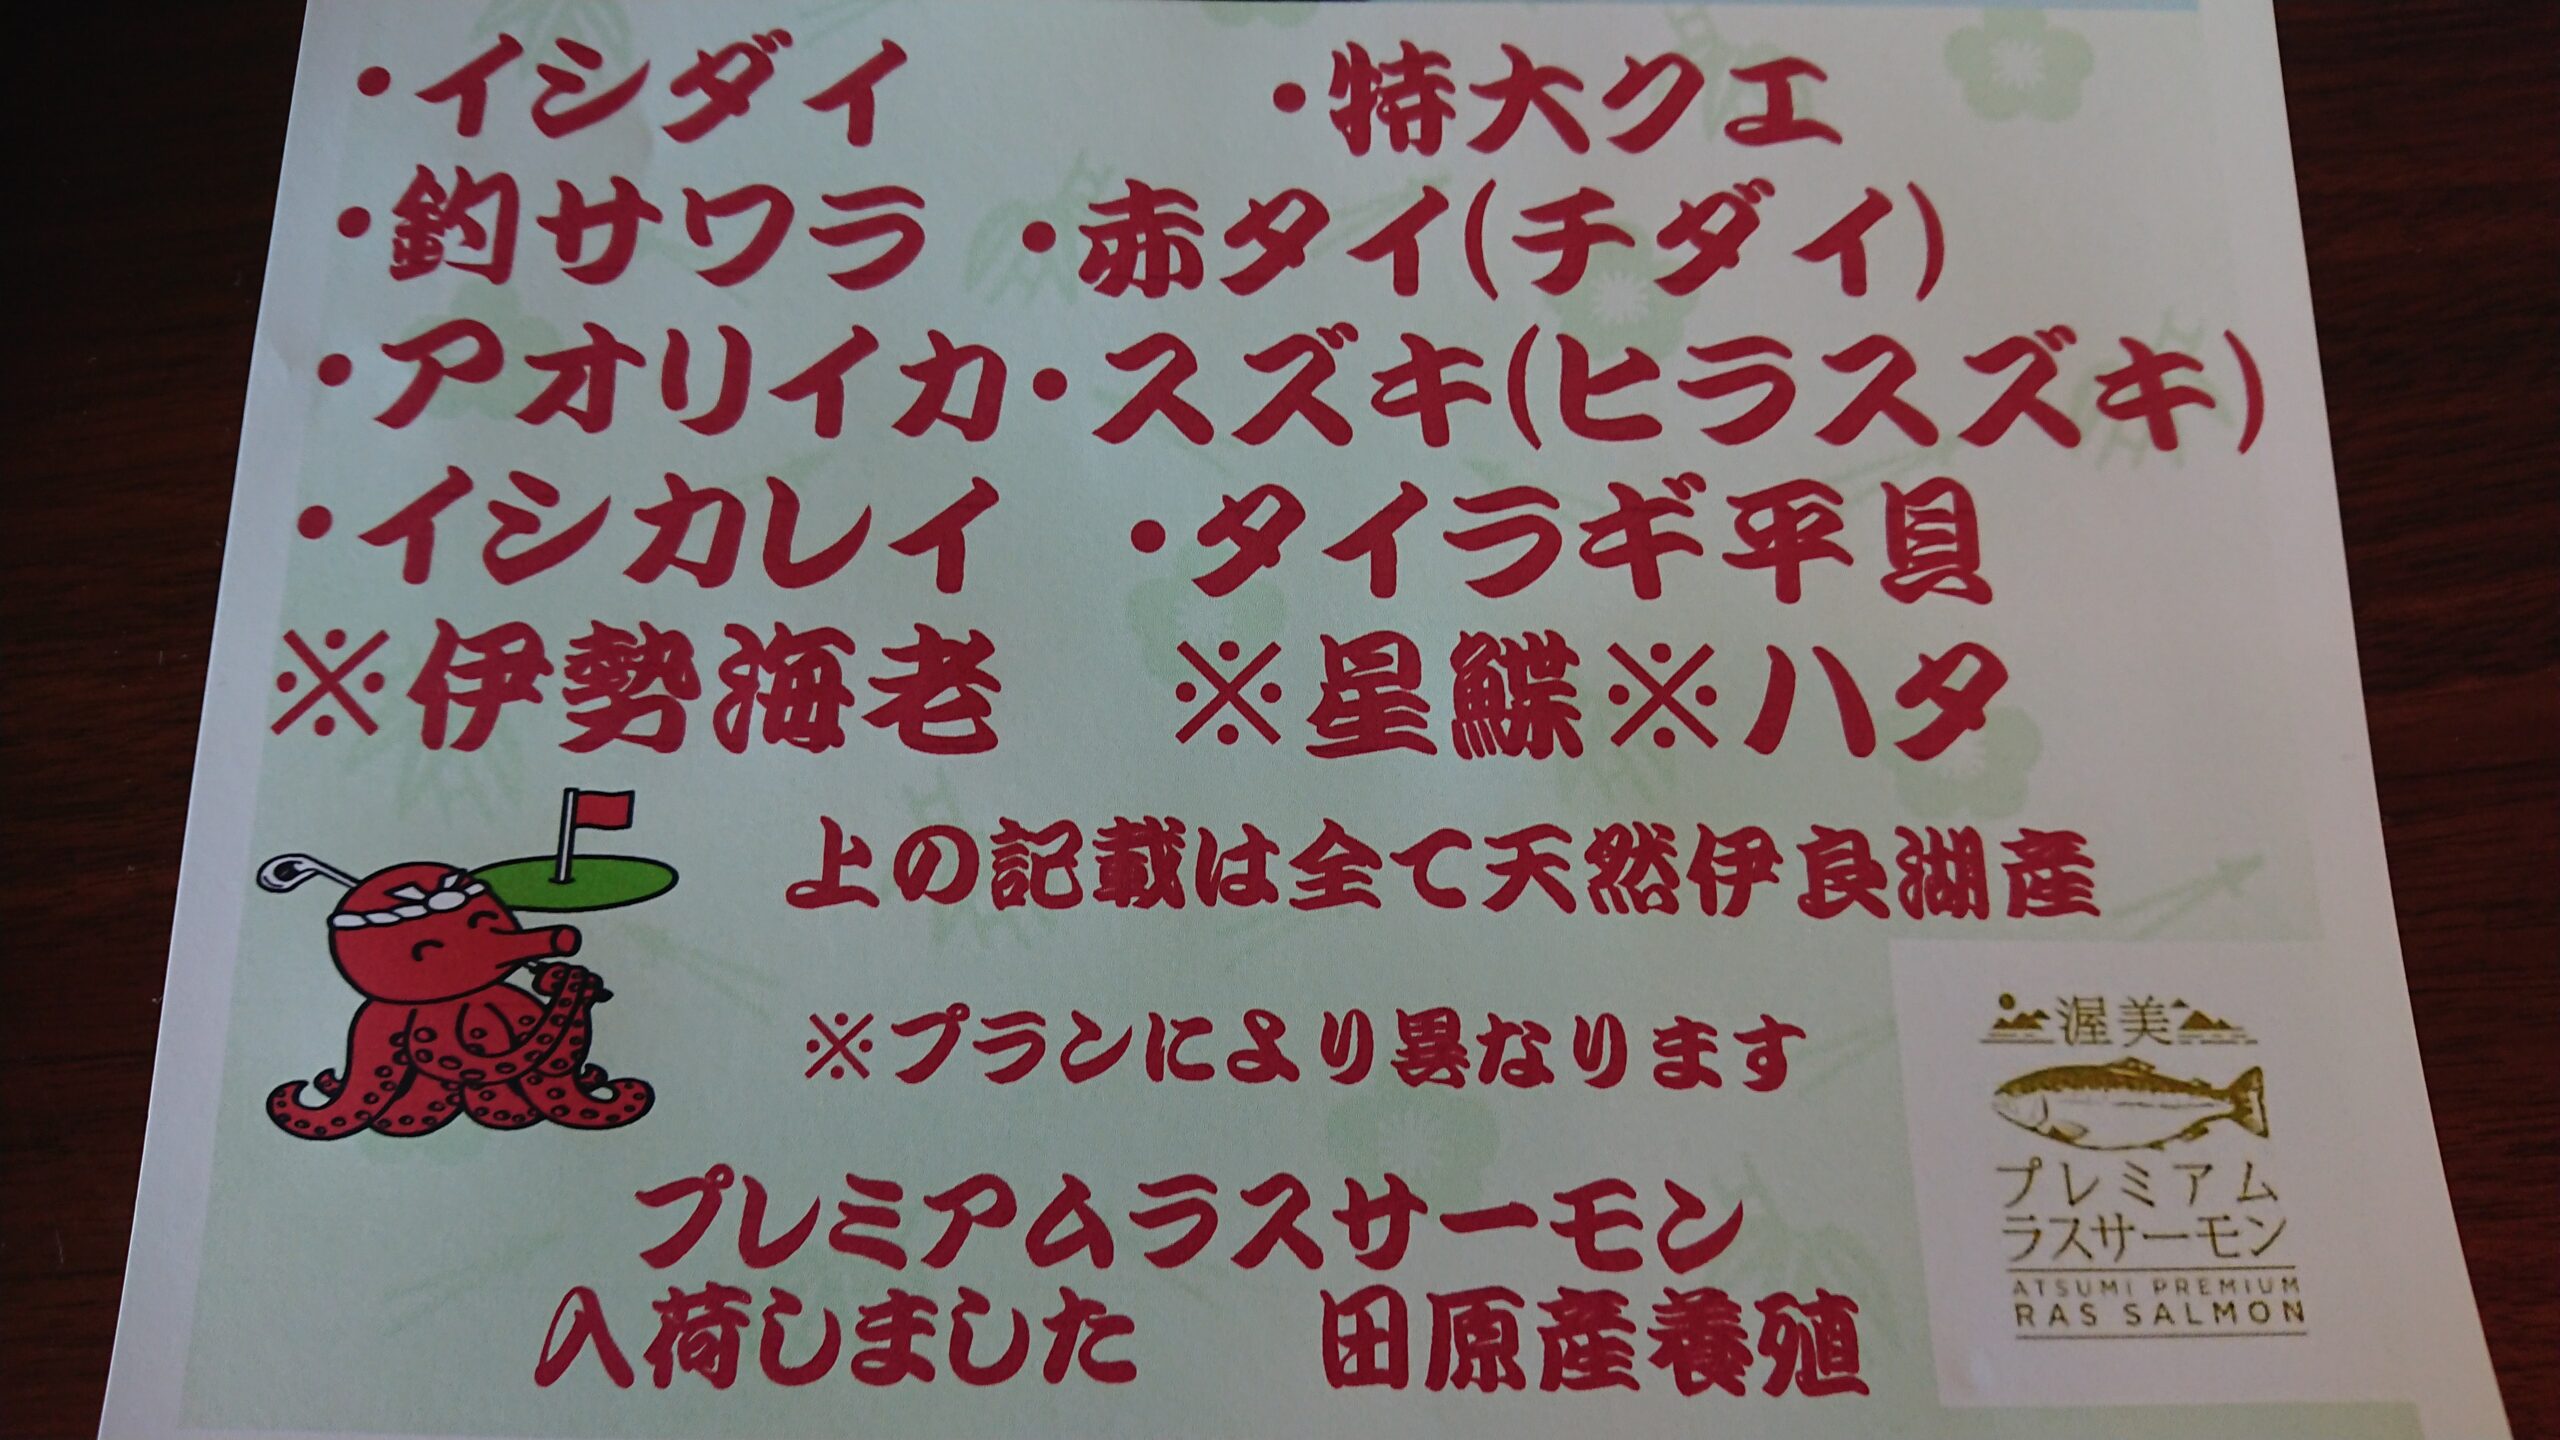 ・イシダイ ・特大クエ
・釣サワラ ・赤タイ(チダイ)
・アオリイカ・スズキ(ヒラスズキ)
・イシカレイ ・タイラギ平貝
※伊勢海老 ※星鰈※ハタ
上の記載は全て天然伊良湖産
※プランにより異なります
プレミアムラスサーモン
入荷しました 田原産養殖
渥美
プレミアム
ラスサーモン
ATSUMI PREMIUM
RAS SALMON